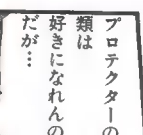 プロテクターの
類は
好きになれんの
だが…